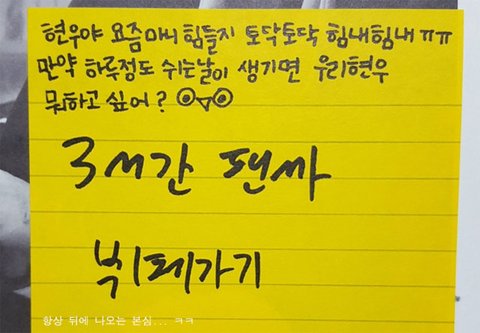 현우야 요즘마니 힘들지 토닥토닥 힘내힘내 ㅠㅠ
만약 하루정도 쉬는날이 생기면 우리현우
뭐하고 싶어?
3시간 팬싸
뷔페가기
항상 뒤에 나오는 본심... ㅋㅋ